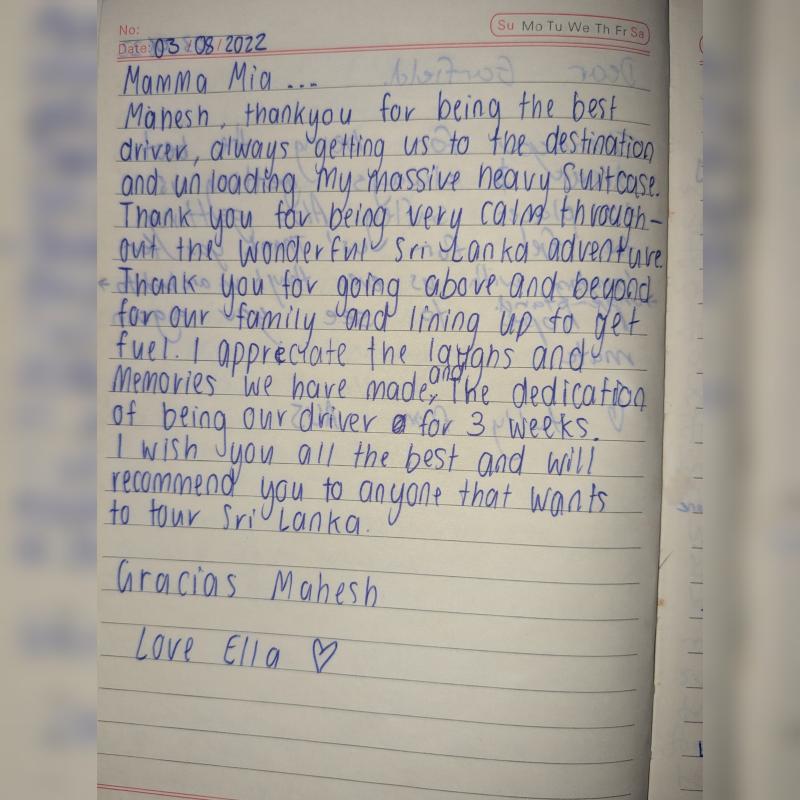 No:
Su Mo Tu We Th Fr Sa
Date: 03/08/2022
Mamma Mia ...
Mahesh, thankyou for being the best
driver, always getting us to the destination
and unloading my massive heavy suitcase.
Thank you for being very calm through-
out the wonderful Sri Lanka adventure.
Thank you for going above and beyond
for our family and lining up to get
fuel. I appreciate the laughs and
memories we have made, and the dedication
of being our driver for 3 weeks.
I wish you all the best and will
recommend you to anyone that wants
to tour Sri Lanka.
Gracias Mahesh
Love Ella ♡